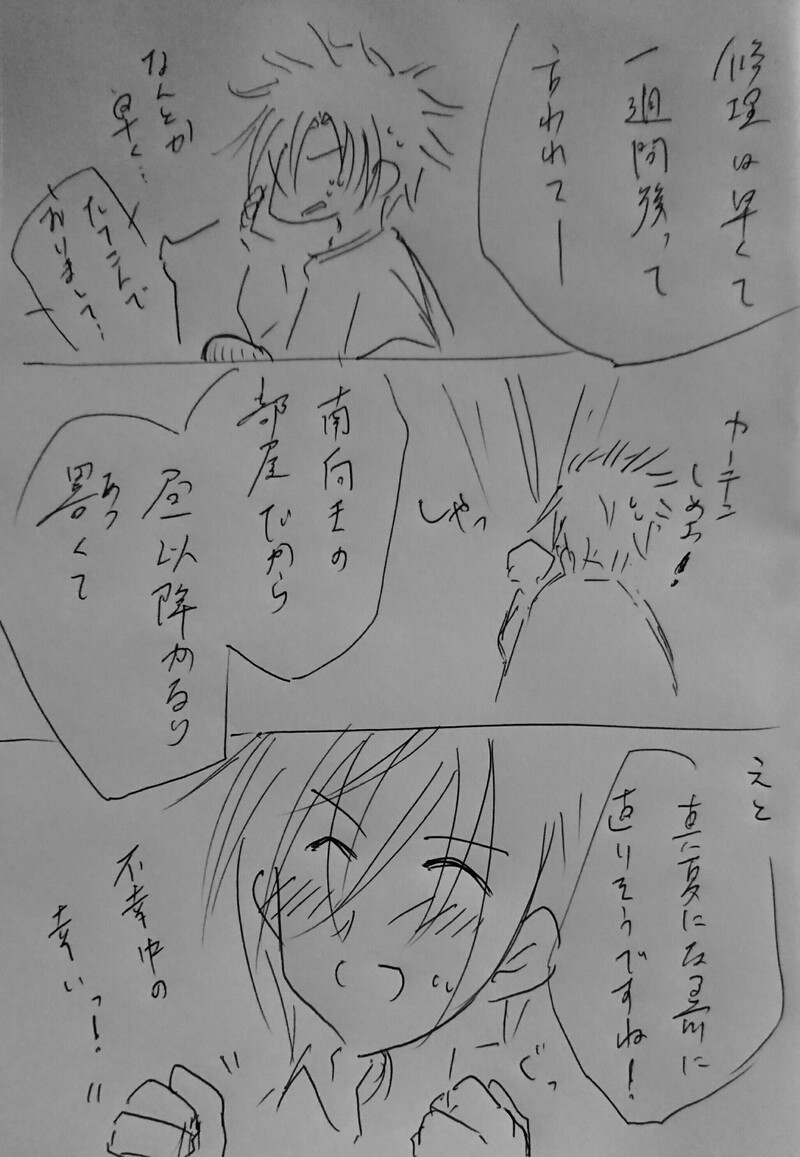 修理は早くて
一週間後って
言われてー
なんとか
早く…
たてこんで
おりまして…
カーテン
しめよ!
しゃっ
南向きの
部屋だから
昼以降かなり
暑くて
あつ
えと
真夏になる前に
直りそうですね!
ぐっ
不幸中の
幸いっ!